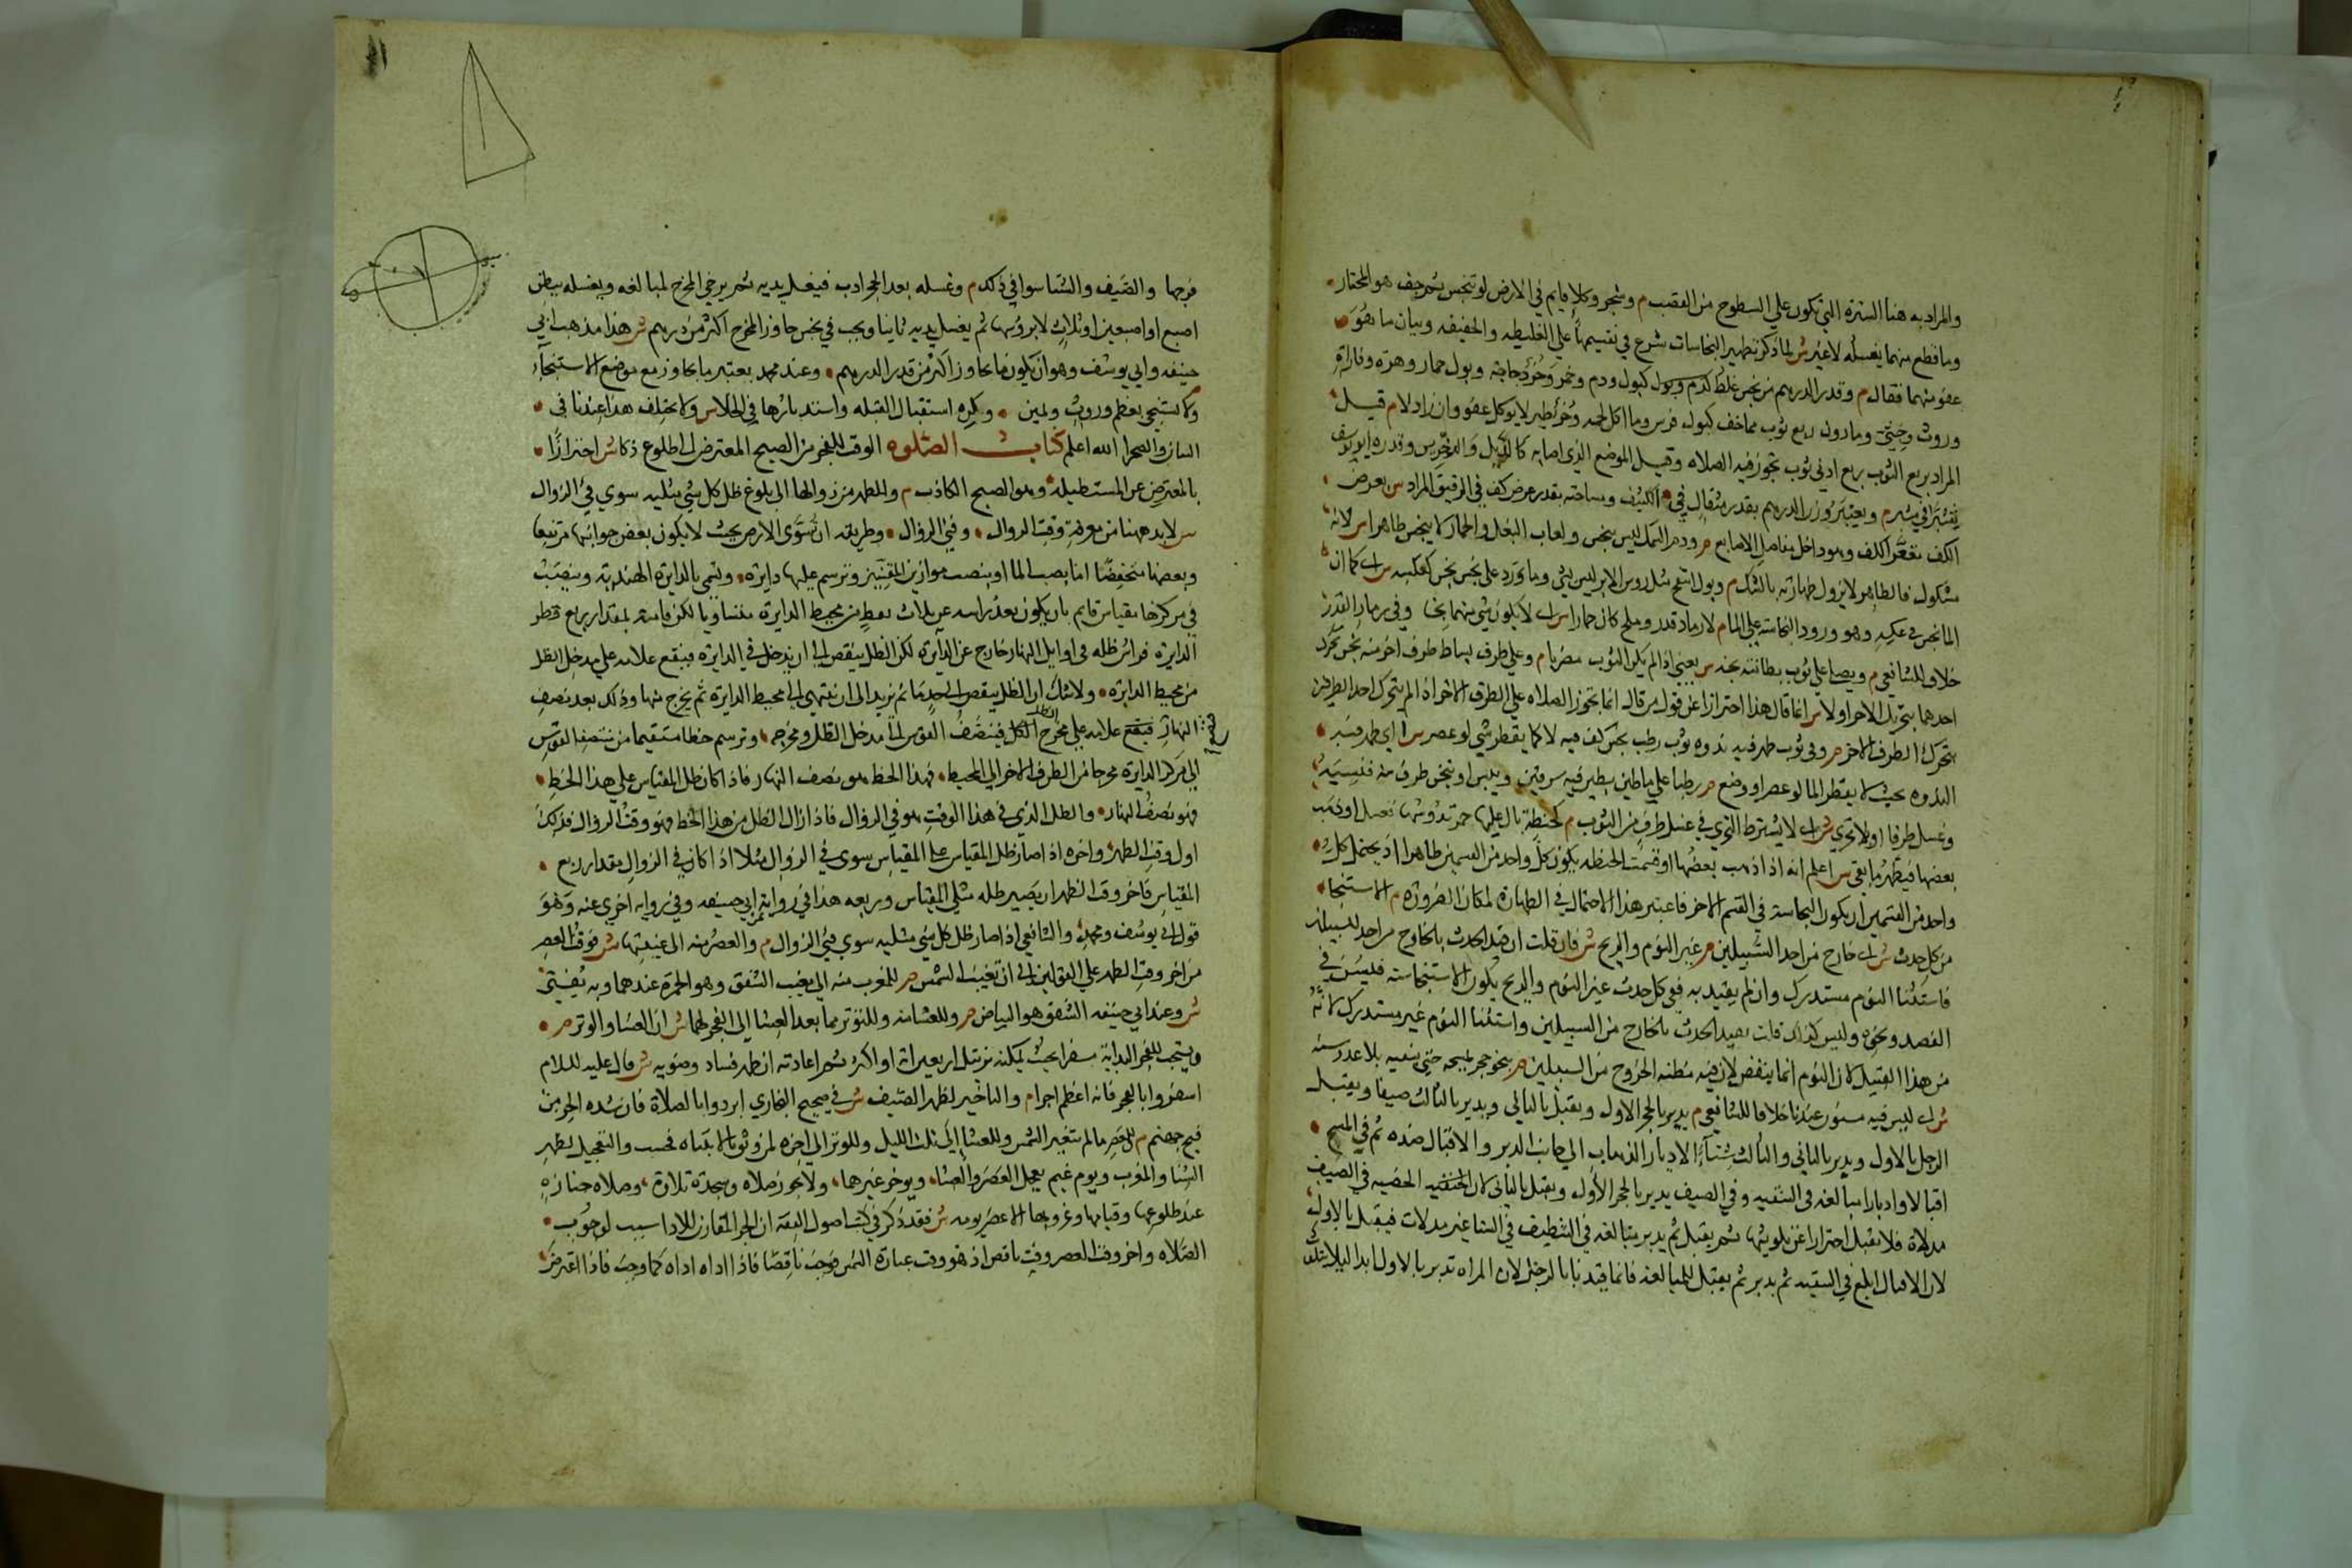 والمراد به هنا السترة التي تكون على السطوح من القصب م وشجر وكلإ قايم في الارض لو تنجس ثم جف هو المختار
وما قطع منهما يغسله لا غير ش لما ذكر تطهير النجاسات شرع في تقسيمها على الغليظه والخفيفه وبيان ما هو
عفو منهما فقال م وقدر الدرهم من نجس غلظ كدم وبول كبول ودم وخمر وخرؤ دجاجة وبول حمار وهرة وفارة
وروث وخثي وما دون ربع ثوب مما خف كبول فرس وما اكل لحمه وخرؤ طير لا يوكل عفو وان زاد لا م قيل
المراد بربع الثوب ربع ادنى ثوب تجوز فيه الصلاه وقيل الموضع الذي اصابه كالذيل والدخريص وقدره ابو يوسف
بشبر في شبر م ويعتبر وزن الدرهم بقدر مثقال في الكثيف ومساحته بقدر عرض كف في الرقيق المراد س بعرض
الكف مقعر الكف وهو داخل مفاصل الاصابع م ودم السمك ليس بنجس ولعاب البغل والحمار لا ينجس طاهرا س لانه
مشكوك فالطاهر لا يزول طهارته بالشك م وبول انتضح مثل روس الابر ليس بشي وما ورد على نجس نجس كعكسه س اي كما ان
الما نجس في عكسه وهو ورود النجاسه على الما م لا رماد قذر وملح كان حمارا س اي لا يكون شي منهما نجسا وفي رماد القذر
خلاف للشافعي م ويصلي على ثوب بطانته نجسه س يعني اذا لم يكن الثوب مضربا م وعلى طرف بساط طرف اخر منه نجس تحرك
احدهما بتحريك الاخر اولا س انما قال هذا احترازا عن قول من قال انما تجوز الصلاه على الطرف الاخر اذا لم يتحرك احد الطرفين
بتحرك الطرف الاخر م وفي ثوب ظهر فيه ندوه ثوب رطب نجس لف فيه لا كما يقطر شي لو عصر س اي ظهر فيه
الندوه بحيث لا يقطر الما لو عصر او وضع م رطبا على ما طين بطين فيه سرقين ويبس او تنجس طرف منه فنسيه
وغسل طرفا اولا تحري ش اي لا يشترط التحري في غسل طرف من الثوب م كحنطة بال عليها حمر تدوسها فغسل او ذهب
بعضها فيطهر ما بقي س اعلم انه اذا ذهب بعضها او قسمت الحنطه يكون كل واحد من القسمين طاهرا اذ يحتمل كل
واحد من القسمين ان يكون النجاسة في القسم الاخر فاعتبر هذا الاحتمال في الطهارة لمكان الضرورة م الاستنجا
من كل حدث ش اي خارج من احد السبيلين م غير النوم والريح ش فان قلت ان قيد الحدث بالخارج من احد السبيلين
فاستثنا النوم مستدرك وان لم يقيد به ففي كل حدث غير النوم والريح يكون الاستنجا سنه فيسن في
الفصد ونحوه وليس كذلك قلت يقيد الحدث بالخارج من السبيلين واستثنا النوم غير مستدرك لانه
من هذا القبيل لان النوم انما ينقض لان فيه مظنه الخروج من السبيلين م بنحو حجر يمسحه حتى ينقيه بلا عدد سنه
ش اي ليس فيه مسنون عندنا خلافا للشافعي م يدبر بالحجر الاول ويقبل بالثاني ويدبر بالثالث صيفا ويقبل
الرجل بالاول ويدبر بالثاني والثالث شتاء الادبار الذهاب الى جانب الدبر والاقبال ضده ثم في المسح
اقبالا وادبارا مبالغه في التنقيه وفي الصيف يدبر بالحجر الاول ويقبل بالثاني لان الخصيه في الصيف
مدلاة فلا يقبل احترازا عن تلويثها ثم يقبل ثم يدبر مبالغه في التنظيف في الشتا غير مدلات فيقبل بالاول
لان الاقبال ابلغ في التنقيه ثم يدبر ثم يقبل للمبالغه فانما قيدنا بالرجل لان المراه تدبر بالاول ابدا ليلا يتلوث
فرجها والصيف والشتا سوا في ذلك م وغسله بعد الحجر ادب فيغسل يديه ثم يرخي المخرج لمبالغه ويغسله ببطن
اصبع او اصبعين او ثلاث لا بروسها ثم يغسل يديه ثانيا ويجب في نجس جاوز المخرج اكثر من درهم ش هذا مذهب ابي
حنيفه وابي يوسف وهو ان يكون ما تجاوز اكثر من قدر الدرهم وعند محمد يعتبر ما تجاوز مع موضع الاستنجاء
ولا يستنجي بعظم وروث ويمين وكره استقبال القبله واستدبارها في الخلا س ولا يختلف هذا عندنا في
البنيان والصحرا الله اعلم كتاب الصلوه الوقت للفجر من الصبح المعترض الى طلوع ذكا ش احترازا
بالمعترض عن المستطيله وهو الصبح الكاذب م وللظهر من زوالها الى بلوغ ظل كل شي مثليه سوى في الزوال
س لا بد ههنا من معرفة وقت الزوال وفي الزوال وطريقه ان تسوى الارض بحيث لا يكون بعض جوانبها مرتفعا
وبعضها منخفضا اما بصب الما او بنصب موازين المقنين وترسم عليها دايرة وتسمى بالدايرة الهنديه وينصب
في مركزها مقياس قايم بان يكون بعد راسه عن ثلاث نقط من محيط الدايرة متساويا لكن قامته بمقدار ربع قطر
الدايرة فراس ظله في اوايل النهار خارج عن الدايرة لكن الظل ينقص الى ان يدخل في الدايرة فيضع علامه على مدخل الظل
من محيط الدايرة ولا شك ان الظل ينقص الى حد ما ثم يزيد الى ان ينتهي الى محيط الدايرة ثم يخرج منها وذلك بعد نصف
النهار فيضع علامه على مخرج الظل فينصف القوس لما مدخل الظل ومخرجه وترسم خطا مستقيما من منتصف القوس
الى مركز الدايرة مخرجا من الطرف الاخر الى المحيط فهذا الخط هو نصف النهار فاذا كان ظل المقياس على هذا الخط
فهو نصف النهار والظل الذي في هذا الوقت هو في الزوال فاذا زال الظل من هذا الخط فهو وقت الزوال فذلك
اول وقت الظهر واخره اذا صار ظل المقياس مثلي المقياس سوى في الزوال مثلا اذا كان في الزوال مقدار ربع
المقياس فاخر وقت الظهر ان يصير ظله مثلي المقياس وربعه هذا في رواية عن ابي حنيفه وفي رواية اخرى عنه وهو
قول ابي يوسف ومحمد والشافعي اذا صار ظل كل شي مثليه سوى في الزوال م والعصر منه الى غيبتها ش فوقت العصر
من اخر وقت الظهر على القولين الى ان تغيب الشمس م للمغرب منه الى مغيب الشفق وهو الحمرة عندهما وبه يفتى
ش وعند ابي حنيفه الشفق هو البياض م وللعشا منه وللوتر مما بعد العشا الى الفجر لهما ش اي العشا والوتر م
ويستحب للفجر البداية مسفرا بحيث يمكنه ترتيل اربعين اية او اكثر ثم اعادته ان ظهر فساد وضويه ش قال عليه السلام
اسفروا بالفجر فانه اعظم اجرا م والتاخير لظهر الصيف ش في صحيح البخاري ابردوا بالصلاة فان شده الحر من
فيح جهنم م للعصر ما لم يتغير الشمس وللعشا الى ثلث الليل وللوتر الى اخره لمن وثق بالانتباه فحسب والتعجيل لظهر
الشتا والمغرب ويوم غيم يعجل العصر والعشا ويوخر غيرهما ولا تجوز صلاه وسجدة تلاوة وصلاه جنازه
عند طلوعها وقيامها وغروبها الا عصر يومه ش فقد ذكر في كتب اصول الفقه ان الجزء المقارن للادا سبب لوجوب
الصلاه واخر وقت العصر وقت ناقص اذ هو وقت عبادة الشمس فوجب ناقصا فاذا اداه اداه كما وجب فاذا اعترض